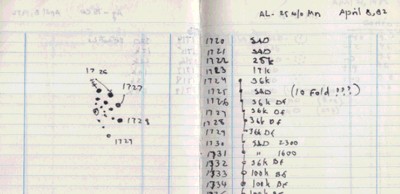 1726
1727
1728
1729
AL-25 w/o Mn April 8, 82
1720 SAD
1721 SAD
1722
1723 17k
1724 36k
1725 SAD (10 Fold ???)
1726 36k DF
1727 36k DF
1728 36k DF
1729 36k DF
1730 SAD 2300
1731 " 1600
1732 36k
1733 100k
1734 100k